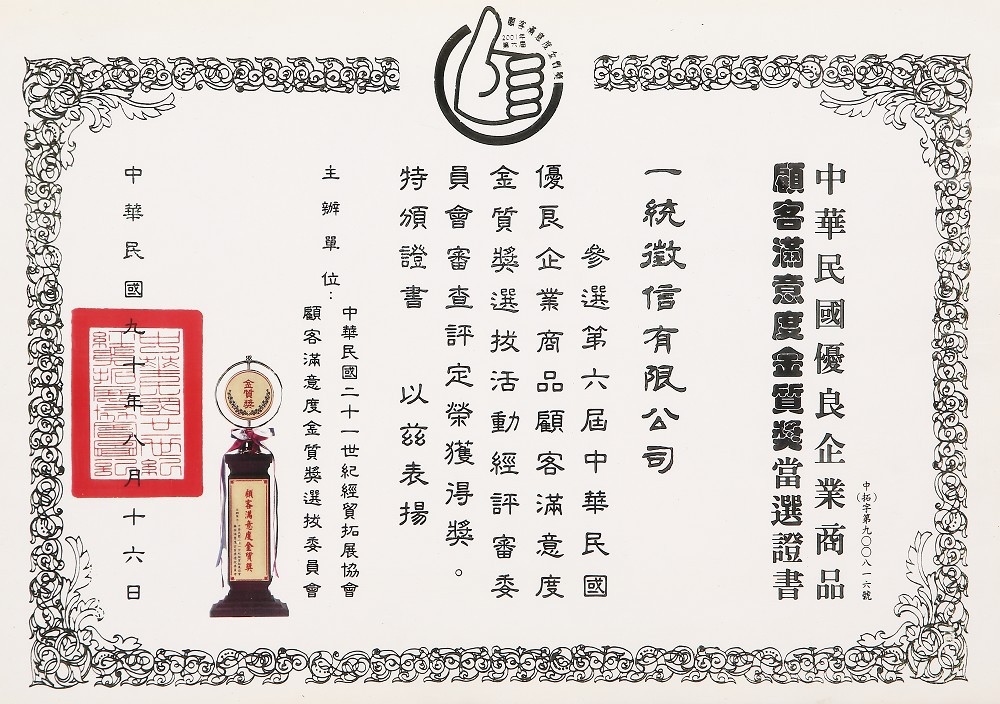 顧客滿意度金質獎
2001年
第六屆
中華民國優良企業商品
顧客滿意度金質獎當選證書
中(拓)字第九〇〇八一六號
一統徵信有限公司
參選第六屆中華民國
優良企業商品顧客滿意度
金質獎選拔活動經評審委
員會審查評定榮獲得獎。
特頒證書 以茲表揚
主辦單位：
中華民國二十一世紀經貿拓展協會
顧客滿意度金質獎選拔委員會
金質獎
顧客滿意度金質獎
中華民國九十年八月十六日